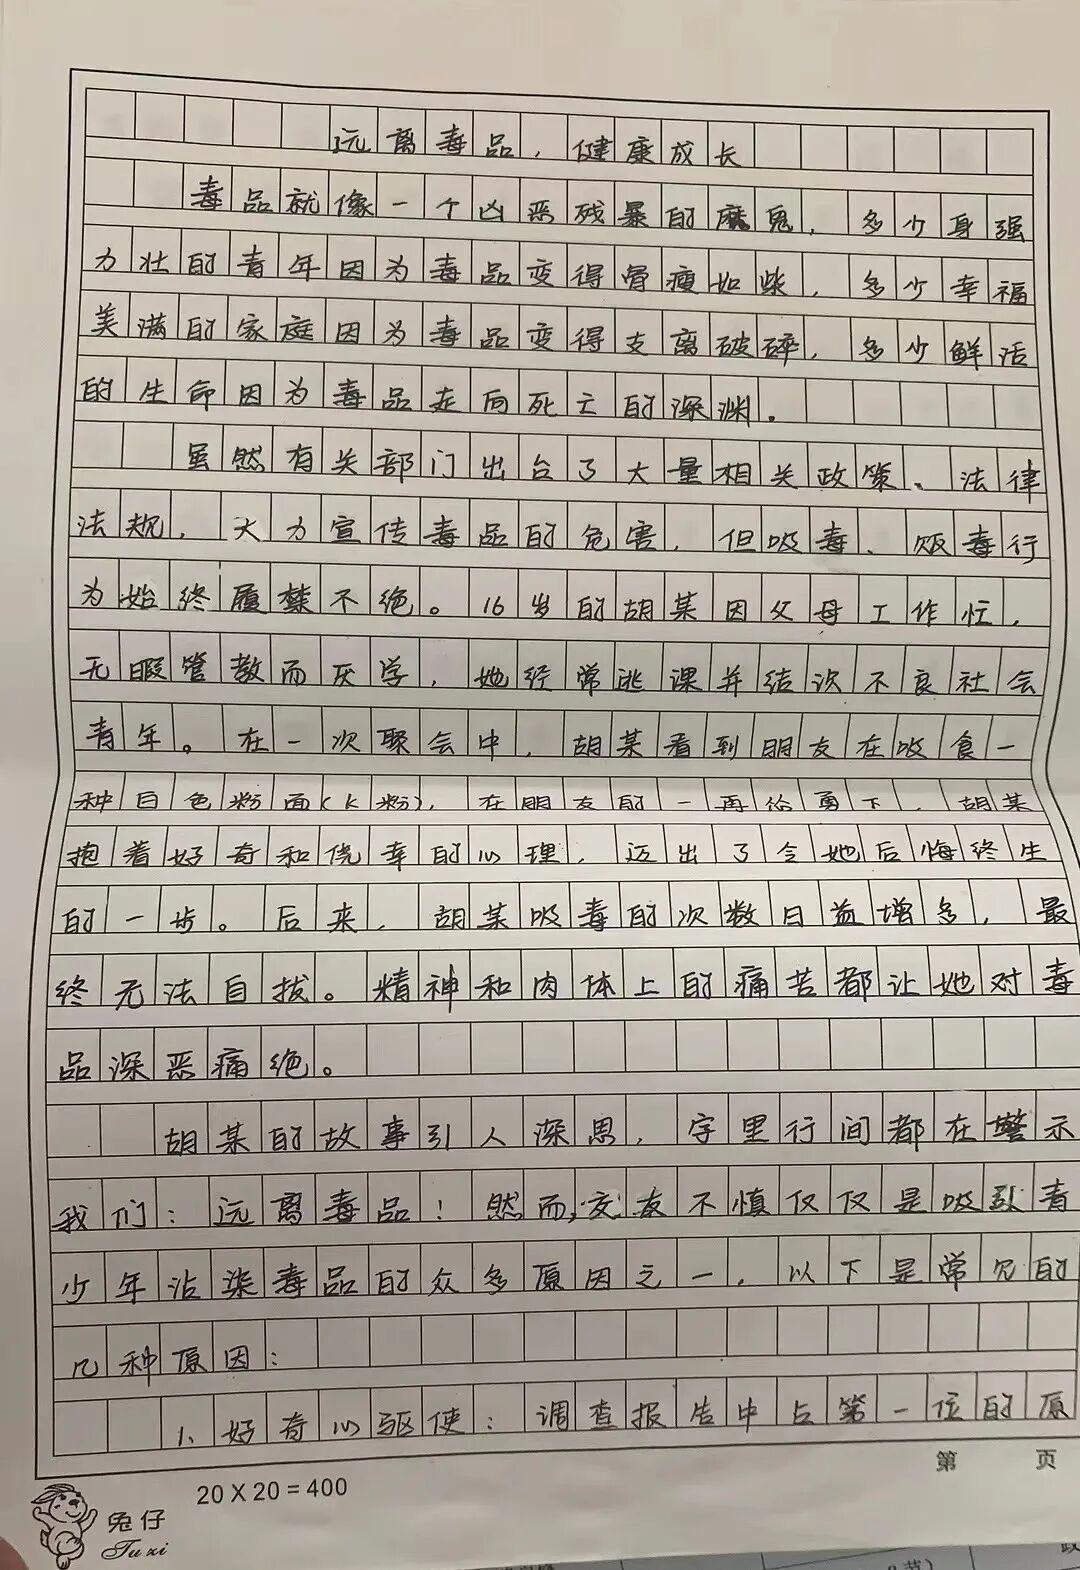 远离毒品，健康成长
毒品就像一个凶恶残暴的魔鬼，多少身强
力壮的青年因为毒品变得骨瘦如柴，多少幸福
美满的家庭因为毒品变得支离破碎，多少鲜活
的生命因为毒品走向死亡的深渊。
虽然有关部门出台了大量相关政策、法律
法规，大力宣传毒品的危害，但吸毒、贩毒行
为始终履禁不绝。16岁的胡某因父母工作忙，
无暇管教而厌学，她经常逃课并结次不良社会
青年。在一次聚会中，胡某看到朋友在吸食一
种白色粉面(K粉)，在朋友的一再怂勇下，胡某
抱着好奇和侥幸的心理，迈出了令她后悔终生
的一步。后来，胡某吸毒的次数日益增多，最
终无法自拔。精神和肉体上的痛苦都让她对毒
品深恶痛绝。
胡某的故事引人深思，字里行间都在警示
我们：远离毒品！然而，交友不慎仅仅是吸引青
少年沾染毒品的众多原因之一，以下是常见的
几种原因：
1、好奇心驱使：调查报告中占第一位的原
第 页
20X20=400
兔仔
Tuzi